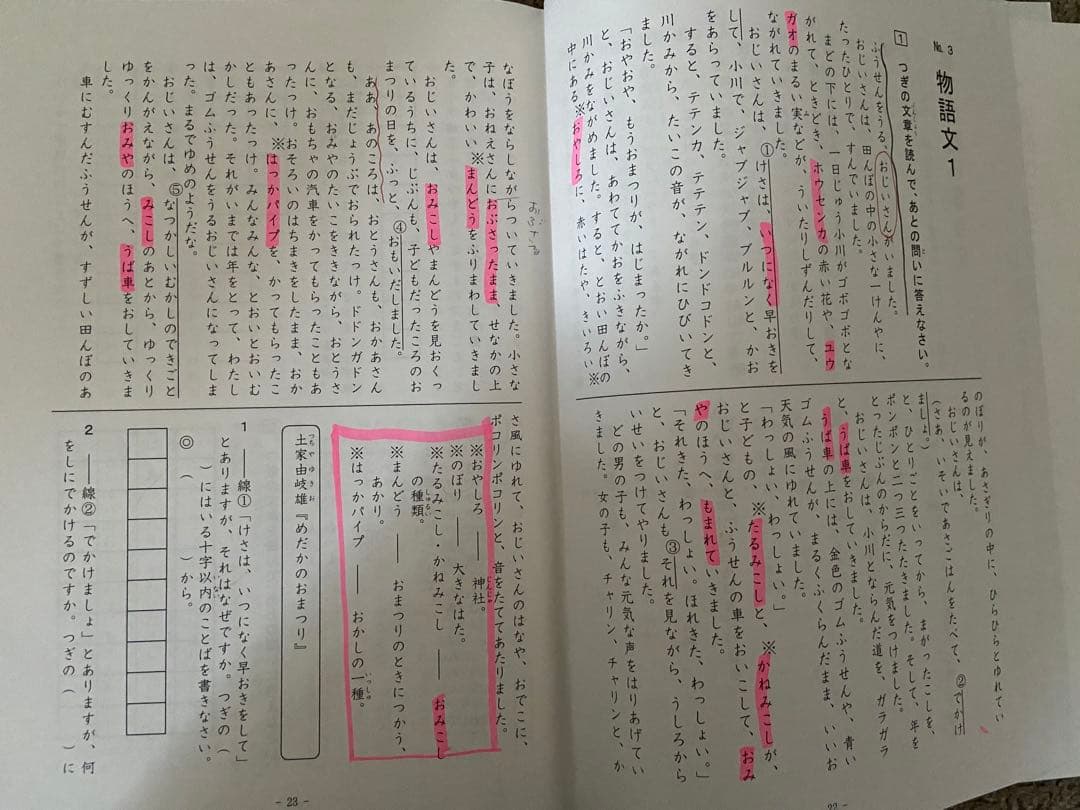 №3
物語文1
1 つぎの文章を読んで、あとの問いに答えなさい。
ふうせんをうる、おじいさんがいました。
おじいさんは、田んぼの中の小さな一けんやに、
たったひとりで、すんでいました。
まどの下には、一日じゅう小川がゴボゴボとな
がれて、ときどき、ホウセンカの赤い花や、ユウ
ガオのまるい実などが、ういたりしずんだりして、
ながれていきました。
おじいさんは、①けさは、いつになく早おきを
して、小川で、ジャブジャブ、ブルルンと、かお
をあらっていました。
すると、テテンカ、テテテン、ドンドコドンと、
川かみから、たいこの音が、ながれにひびいてき
ました。
「おやおや、もうおまつりが、はじまったか。」
と、おじいさんは、あわててかおをふきながら、
川かみをながめました。すると、とおい田んぼの
中にある※おやしろに、赤いはたや、きいろい※
のぼりが、あさぎりの中に、ひらひらとゆれてい
るのが見えました。
おじいさんは、
(さあ、いそいであさごはんをたべて、②でかけ
ましょ。)
と、ひとりごとをいってから、まがったこしを、
ポンポンと二つ三つたたきました。そして、年を
とったじぶんのからだに、元気をつけました。
おじいさんは、小川とならんだ道を、ガラガラ
と、うば車をおしていきました。
うば車の上には、金色のゴムふうせんや、青い
ゴムふうせんが、まるくふくらんだまま、いいお
天気の風にゆれていました。
「わっしょい、わっしょい。」
と子どもの、※たるみこしと、※かねみこしが、
おじいさんと、ふうせんの車をおいこして、おみ
やのほうへ、もまれていきました。
「それきた、わっしょい。ほれきた、わっしょい。」
と、おじいさんも、③それを見ながら、うしろから
いせいをつけてやりました。
どの男の子も、みんな元気な声をはりあげてい
きました。女の子も、チャリン、チャリンと、か
- 22 -
なぼうをならしながらついていきました。小さな
子は、おねえさんにおぶさったまま、せなかの上
で、かわいい※まんどうをふりまわしていきまし
た。
おぶさる
おじいさんは、おみこしやまんどうを見おくっ
ているうちに、じぶんも、子どもだったころのお
まつりの日を、ふっと、④おもいだしました。
ああ、あのころは、おとうさんも、おかあさん
も、まだじょうぶでおられたっけ。ドドンガドン
となる、おみやのたいこをききながら、おとうさ
んに、おもちゃの汽車をかってもらったこともあ
ったっけ。おそろいのはちまきをしたまま、おか
あさんに、※はっかパイプを、かってもらったこ
ともあったっけ。みんなみんな、とおいとおいむ
かしだった。それがいまでは年をとって、わたし
は、ゴムふうせんをうるおじいさんになってしま
った。まるでゆめのようだな。
おじいさんは、⑤なつかしいむかしのできごと
をかんがえながら、みこしのあとから、ゆっくり
ゆっくりおみやのほうへ、うば車をおしていきま
した。
車にむすんだふうせんが、すずしい田んぼのあ
さ風にゆれて、おじいさんのはなや、おでこに、
ポコリンポコリンと、音をたててあたりました。
※おやしろ ―― 神社。
※のぼり ―― 大きなはた。
※たるみこし・かねみこし ―― おみこし
の種類。
※まんどう ―― おまつりのときにつかう、
あかり。
※はっかパイプ ―― おかしの一種。
土家由岐雄『めだかのおまつり』
1 ――線①「けさは、いつになく早おきをして」
とありますが、それはなぜですか。つぎの(
)にはいる十字以内のことばを書きなさい。
◎( )から。
2 ――線②「でかけましょ」とありますが、何
をしにでかけるのですか。つぎの( )に
- 23 -